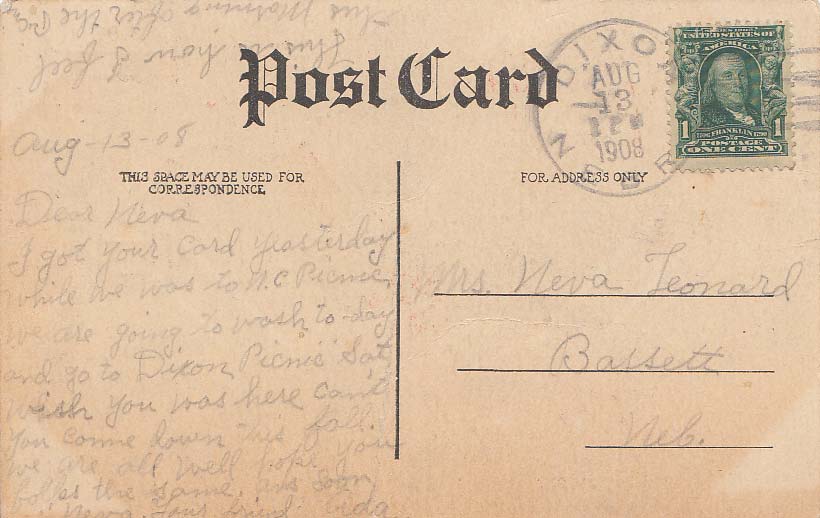 This is how I feel
this Morning after the Picnic
Post Card
DIXON
AUG
13
2 PM
1908
NEBR.
UNITED STATES OF
AMERICA
1 FRANKLIN 1
POSTAGE
ONE CENT
Aug-13-08
THIS SPACE MAY BE USED FOR
CORRESPONDENCE
FOR ADDRESS ONLY
Dear Neva
I got your card yesterday
while we was to N.C Picnic,
we are going to wash to-day
and go to Dixon Picnic Sat
wish you was here can't
you come down this fall.
we are all well hope you
folks the same. ans soon
Neva. Your friend Eida
Mrs. Neva Leonard
Bassett
Neb.